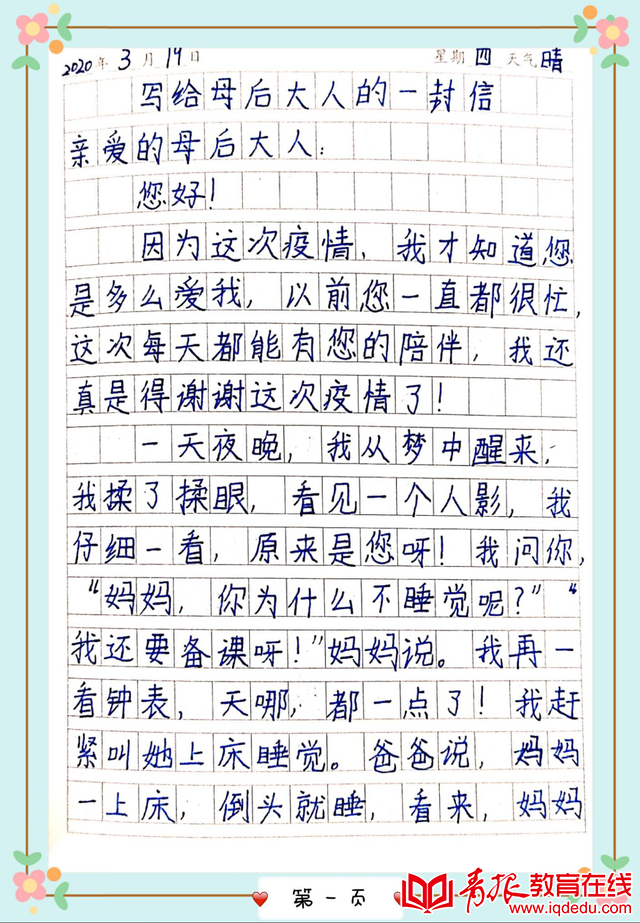 2020年3月19日 星期四 天气晴
写给母后大人的一封信
亲爱的母后大人：
您好！
因为这次疫情，我才知道，您
是多么爱我，以前您一直都很忙，
这次每天都能有您的陪伴，我还
真是得谢谢这次疫情了！
一天夜晚，我从梦中醒来，
我揉了揉眼，看见一个人影，我
仔细一看，原来是您呀！我问你，
“妈妈，你为什么不睡觉呢？”“
我还要备课呀！”妈妈说。我再一
看钟表，天哪，都一点了！我赶
紧叫她上床睡觉。爸爸说，妈妈
一上床，倒头就睡，看来，妈妈
第一页
青报教育在线
www.iqdedu.com